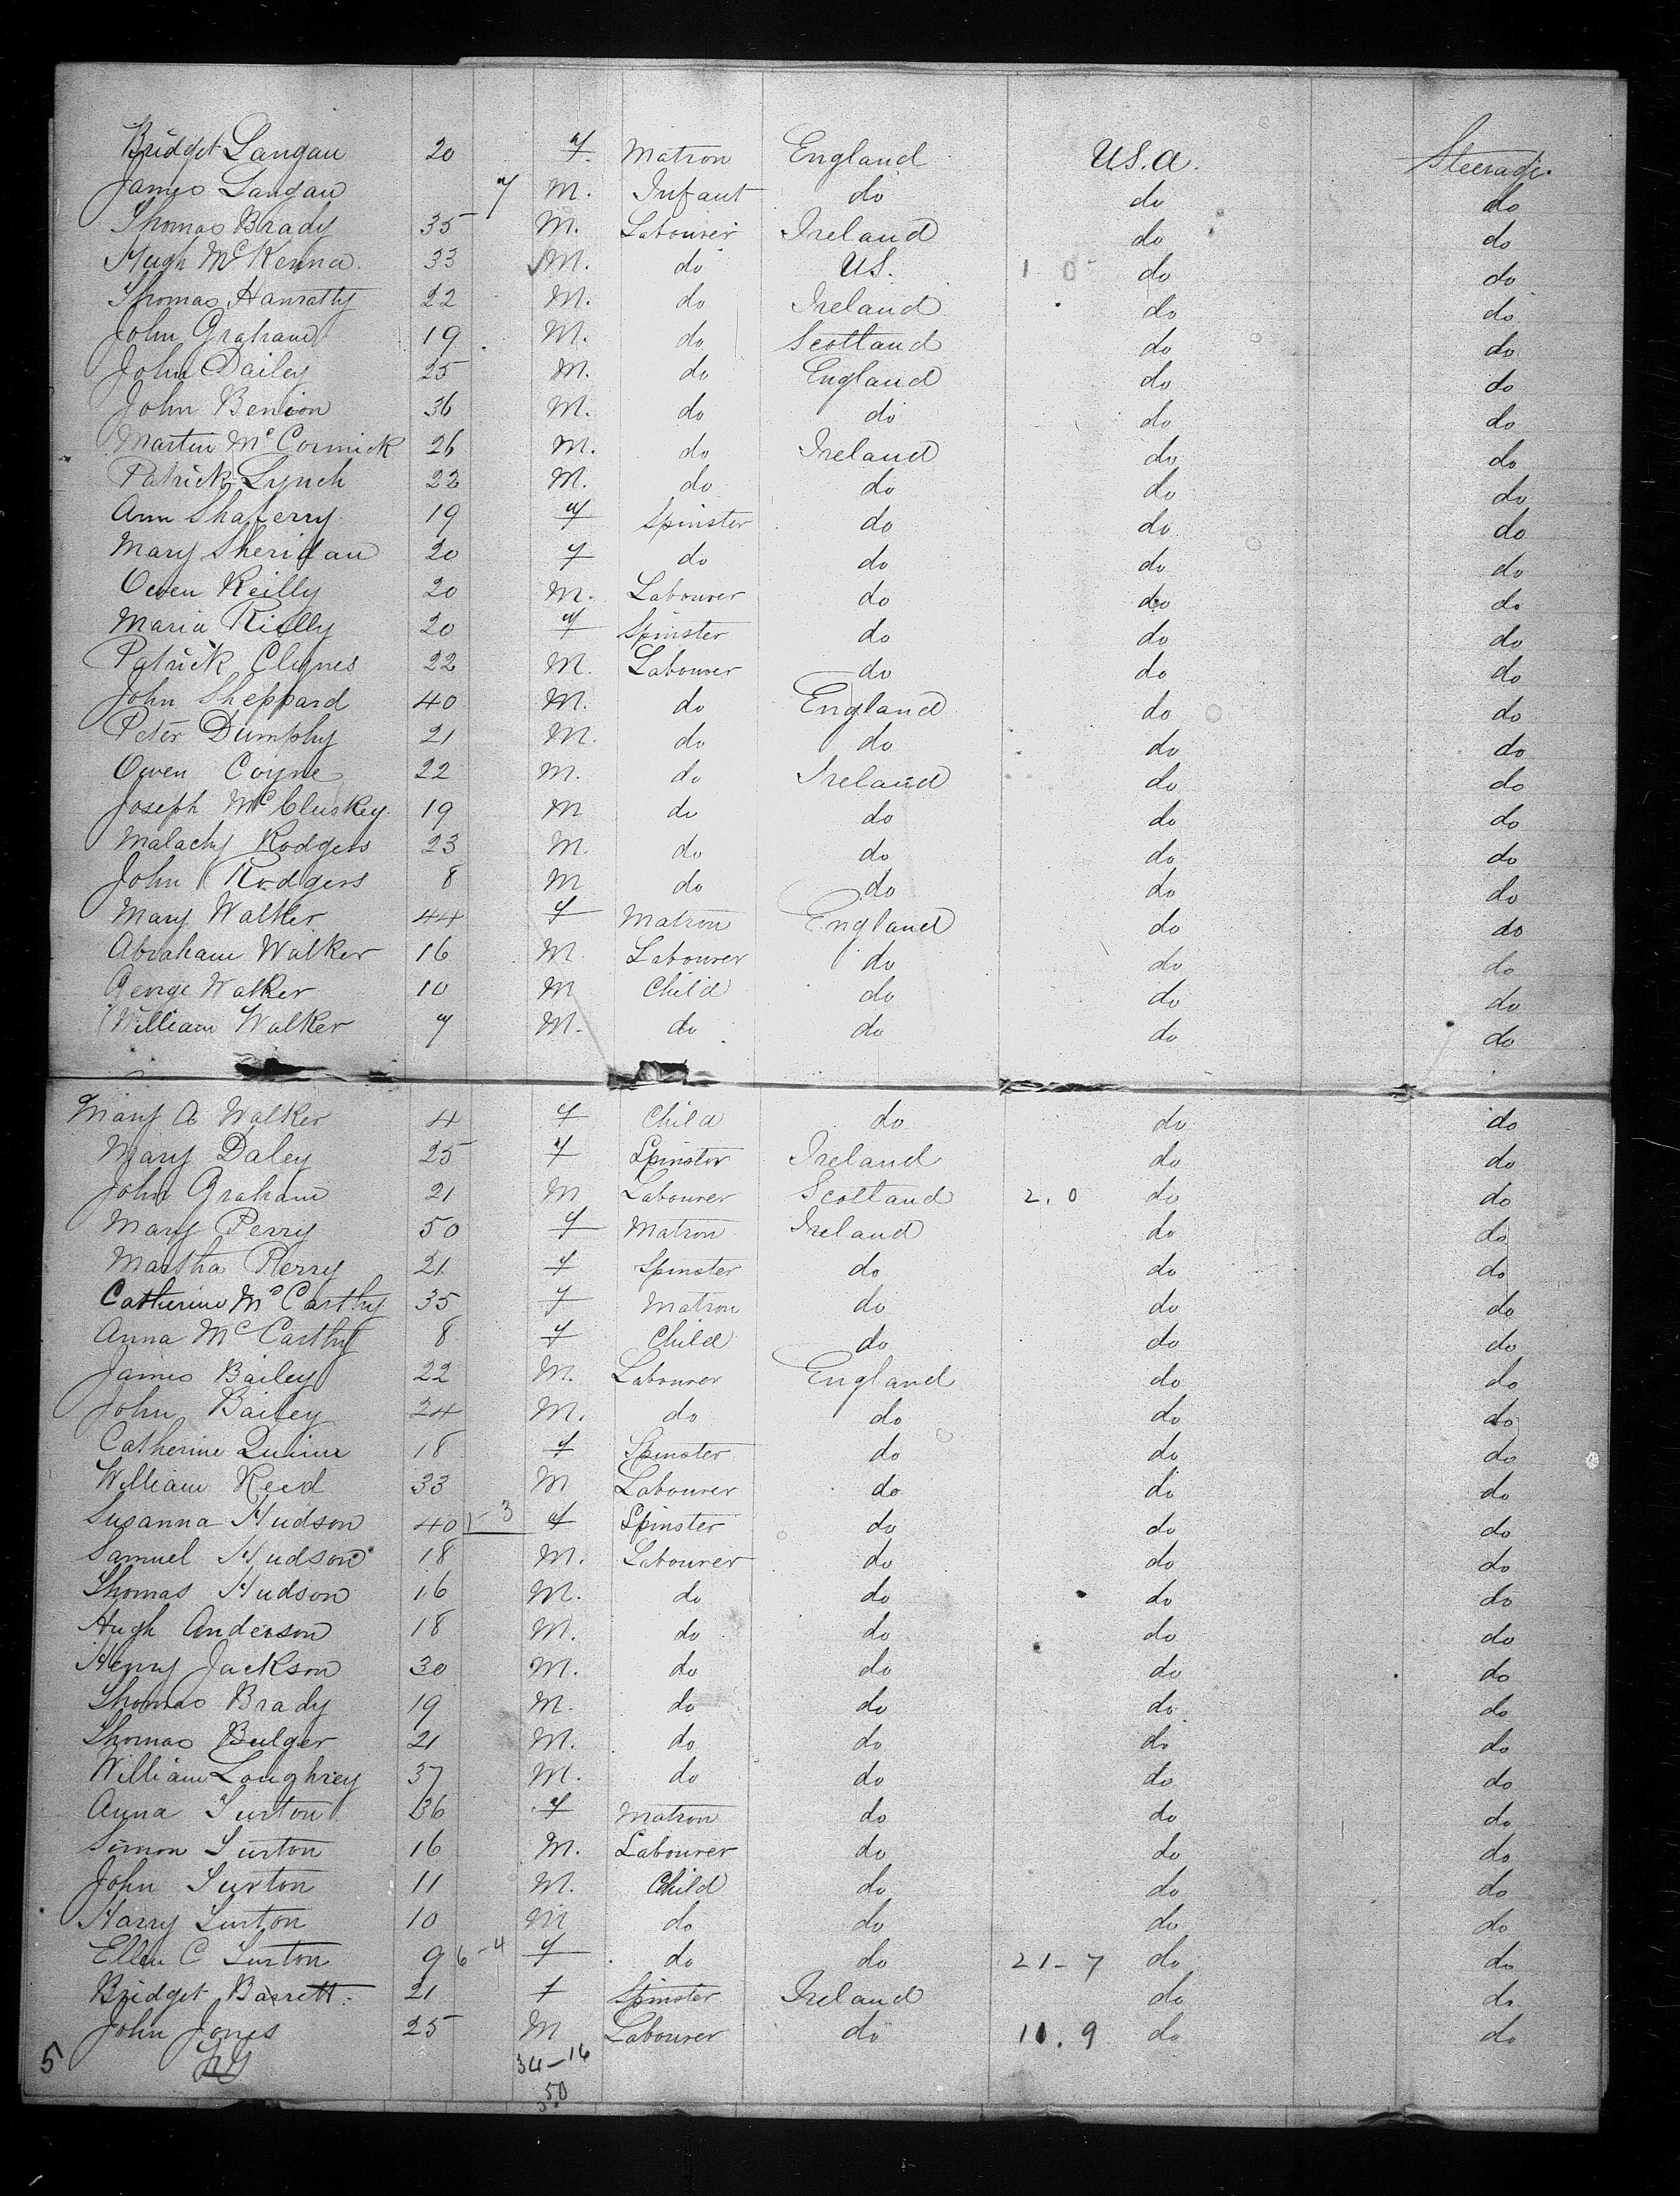 Bridget Langan 20 F. Matron England U.S.A. Steerage.
James Langan 7 M. Infant do do do
Thomas Brady 35 M. Labourer Ireland do do
Hugh McKenna. 33 M. do U.S. 1 0 do do
Thomas Hanratty 22 M. do Ireland do do
John Graham 19 M. do Scotland do do
John Dailey 25 M. do England do do
John Benion 36 M. do do do do
Martin McCormick 26 M. do Ireland do do
Patrick Lynch 22 M. do do do do
Ann Shaferry 19 F Spinster do do do
Mary Sheridan 20 F do do do do
Owen Reilly 20 M. Labourer do do do
Maria Rielly 20 F Spinster do do do
Patrick Clynes 22 M. Labourer do do do
John Sheppard 40 M. do England do do
Peter Dumphy 21 M. do do do do
Owen Coyne 22 M. do Ireland do do
Joseph McCluskey. 19 M do do do do
Malachy Rodgers 23 M. do do do do
John Rodgers 8 M do do do do
Mary Walker 44 F Matron England do do
Abraham Walker 16 M. Labourer do do do
George Walker 10 M Child do do do
William Walker 7 M. do do do do
Mary A Walker 4 F Child do do do
Mary Daley 25 F Spinster Ireland do do
John Graham 21 M Labourer Scotland 2. 0 do do
Mary Perry 50 F Matron Ireland do do
Martha Perry 21 F Spinster do do do
Catherine McCarthy 35 F Matron do do do
Anna McCarthy 8 F Child do do do
James Bailey 22 M. Labourer England do do
John Bailey 24 M. do do do do
Catherine Quinn 18 F Spinster do do do
William Reed 33 M Labourer do do do
Susanna Hudson 40 1-3 F Spinster do do do
Samuel Hudson 18 M. Labourer do do do
Thomas Hudson 16 M. do do do do
Hugh Anderson 18 M. do do do do
Henry Jackson 30 M. do do do do
Thomas Brady 19 M. do do do do
Thomas Bulger 21 M. do do do do
William Loughrey 37 M. do do do do
Anna Turton 36 F Matron do do do
Simon Turton 16 M. Labourer do do do
John Turton 11 M. Child do do do
Harry Turton 10 M do do do do
Ellen C Turton 9 6-4 F do do 21-7 do do
Bridget Barrett. 21 F Spinster Ireland do do
John Jones 25 M Labourer do 11. 9 do do
5 34-16
50